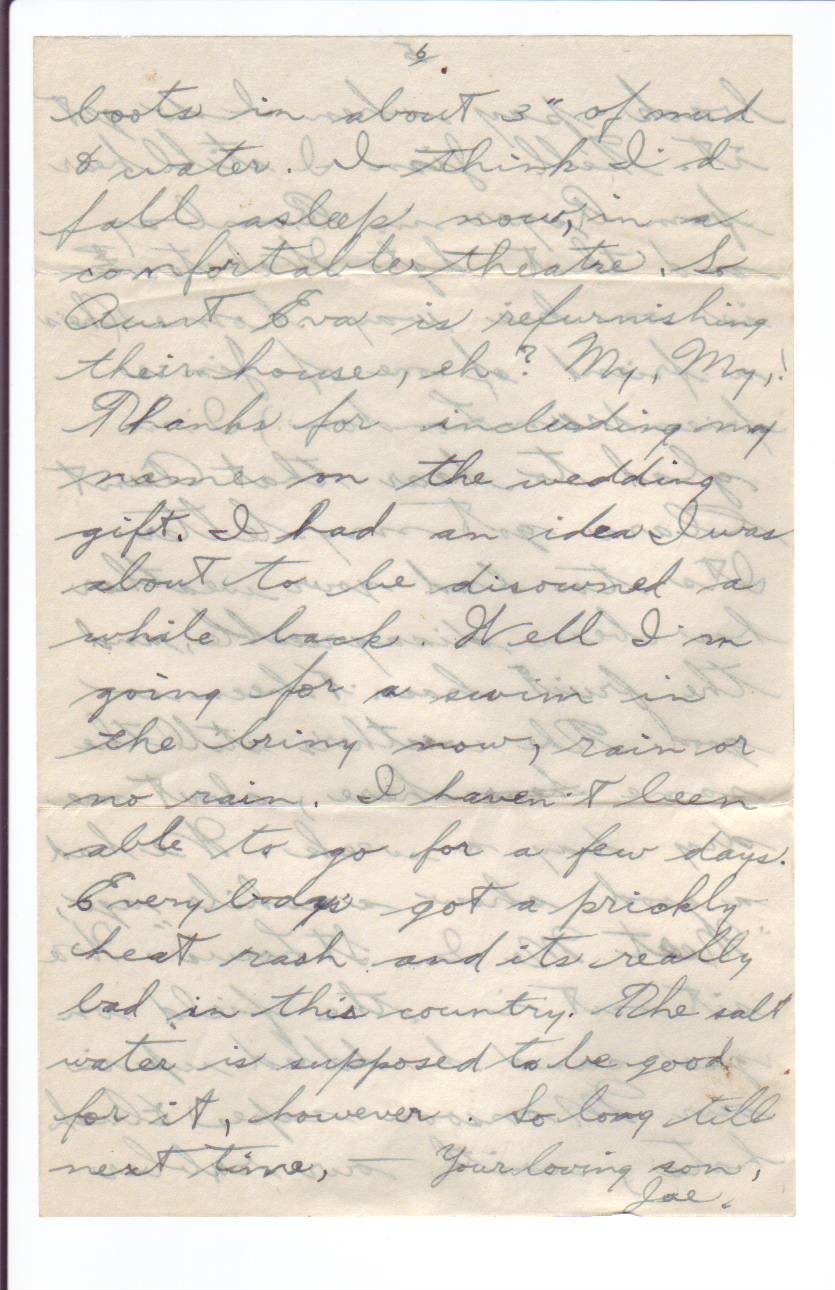 6
boots in about 3" of mud
& water. I think I'd
fall asleep now, in a
comfortable theatre. So
Aunt Eva is refurnishing
their house, eh? My, My,!
Thanks for including my
name on the wedding
gift. I had an idea I was
about to be disowned a
while back. Well I'm
going for a swim in
the briny now, rain or
no rain. I haven't been
able to go for a few days.
Everybody's got a prickly
heat rash and its really
bad in this country. The salt
water is supposed to be good
for it, however. So long till
next time, — Your loving son,
Joe.